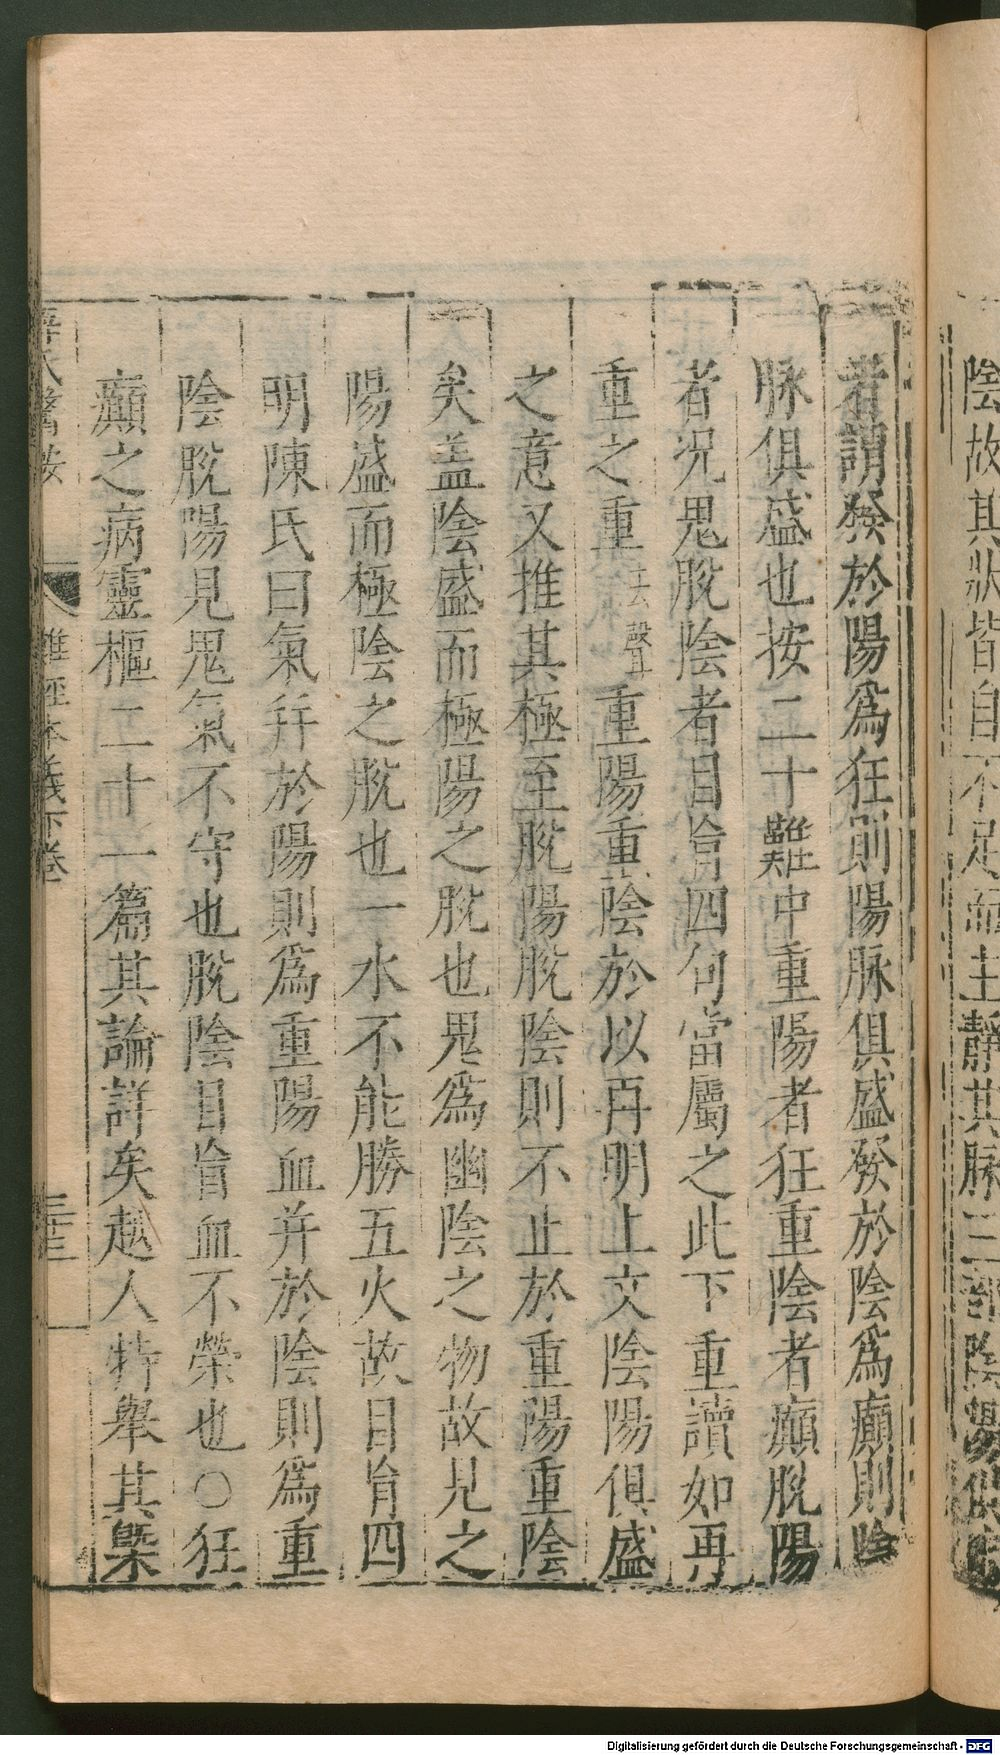 陰故其狀皆自不足而主靜其脉三部陰陽俱
者謂發於陽爲狂則陽脉俱盛發於陰爲癲則陰
脉俱盛也按二十難中重陽者狂重陰者癲脫陽
者見鬼脫陰者目盲四句當屬之此下重讀如再
重之重去聲重陽重陰於以再明上文陰陽俱盛
之意又推其極至脫陽脫陰則不止於重陽重陰
矣盖陰盛而極陽之脫也鬼爲幽陰之物故見之
陽盛而極陰之脫也一水不能勝五火故目盲四
明陳氏曰氣并於陽則爲重陽血并於陰則爲重
陰脫陽見鬼氣不守也脫陰目盲血不榮也○狂
癲之病靈樞二十一篇其論詳矣越人特舉其槩
薛氏醫按 難經本義下卷 三十三
Digitalisierung gefördert durch die Deutsche Forschungsgemeinschaft - DFG